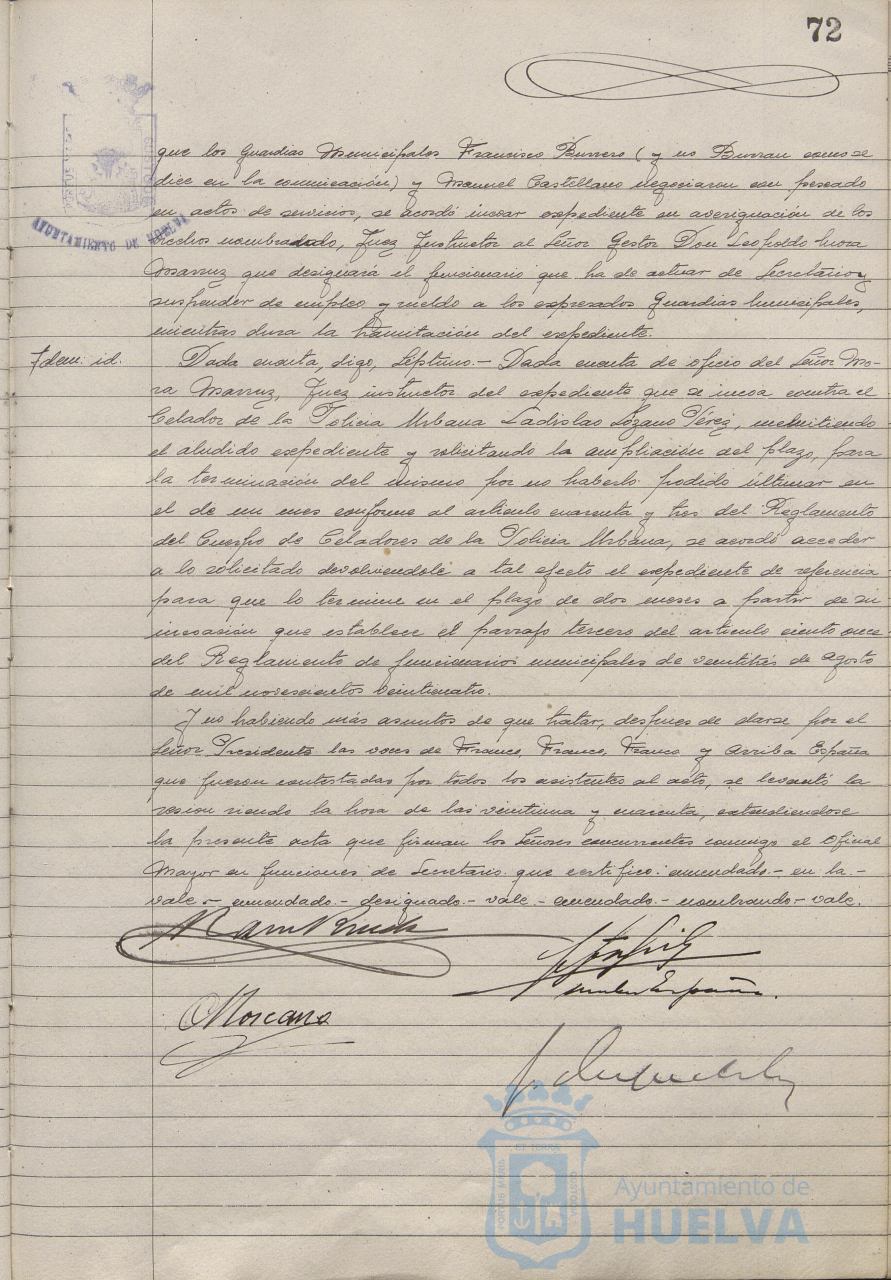 72
que los Guardias Municipales Francisco Burrero (y no Burran como se
dice en la comunicación) y Manuel Castellano negociaron con pescado
en actos de servicios, se acordó incoar expediente en averiguación de los
hechos nombrando, Juez Instructor al Señor Gestor Don Leopoldo Mora
Marruz que designará el funcionario que ha de actuar de Secretario y
suspender de empleo y sueldo a los expresados Guardias Municipales,
mientras dura la tramitación del expediente.
Idem. id.
Dada cuenta, digo, Séptimo.- Dada cuenta de oficio del Señor Mo-
ra Marruz, Juez instructor del expediente que se incoa contra el
Celador de la Policia Urbana Ladislao Lozano Pérez, remitiendo
el aludido expediente y solicitando la ampliación del plazo, para
la terminación del mismo por no haberlo podido últimar en
el de un mes conforme al artículo cuarenta y tres del Reglamento
del Cuerpo de Celadores de la Policia Urbana, se acordó acceder
a lo solicitado devolviendole a tal efecto el expediente de referencia
para que lo termine en el plazo de dos meses a partir de su
incoasión que establece el parrafo tercero del articulo ciento once
del Reglamento de funcionarios municipales de veintitrés de Agosto
de mil novescientos veinticuatro.
Y no habiendo más asuntos de que tratar, despues de darse por el
Señor Presidente las voces de Franco, Franco, Franco y Arriba España
que fueron contestadas por todos los asistentes al acto, se levantó la
sesion siendo la hora de las veintiuna y cuarenta, extendiendose
la presente acta que firman los Señores concurrentes conmigo el Oficial
Mayor en funciones de Secretario que certifico: enmendado.- en la.-
vale.- enmendado.- designado.- vale.- enmendado.- nombrando.- vale.
España.
AYUNTAMIENTO DE HUELVA
Ayuntamiento de
HUELVA